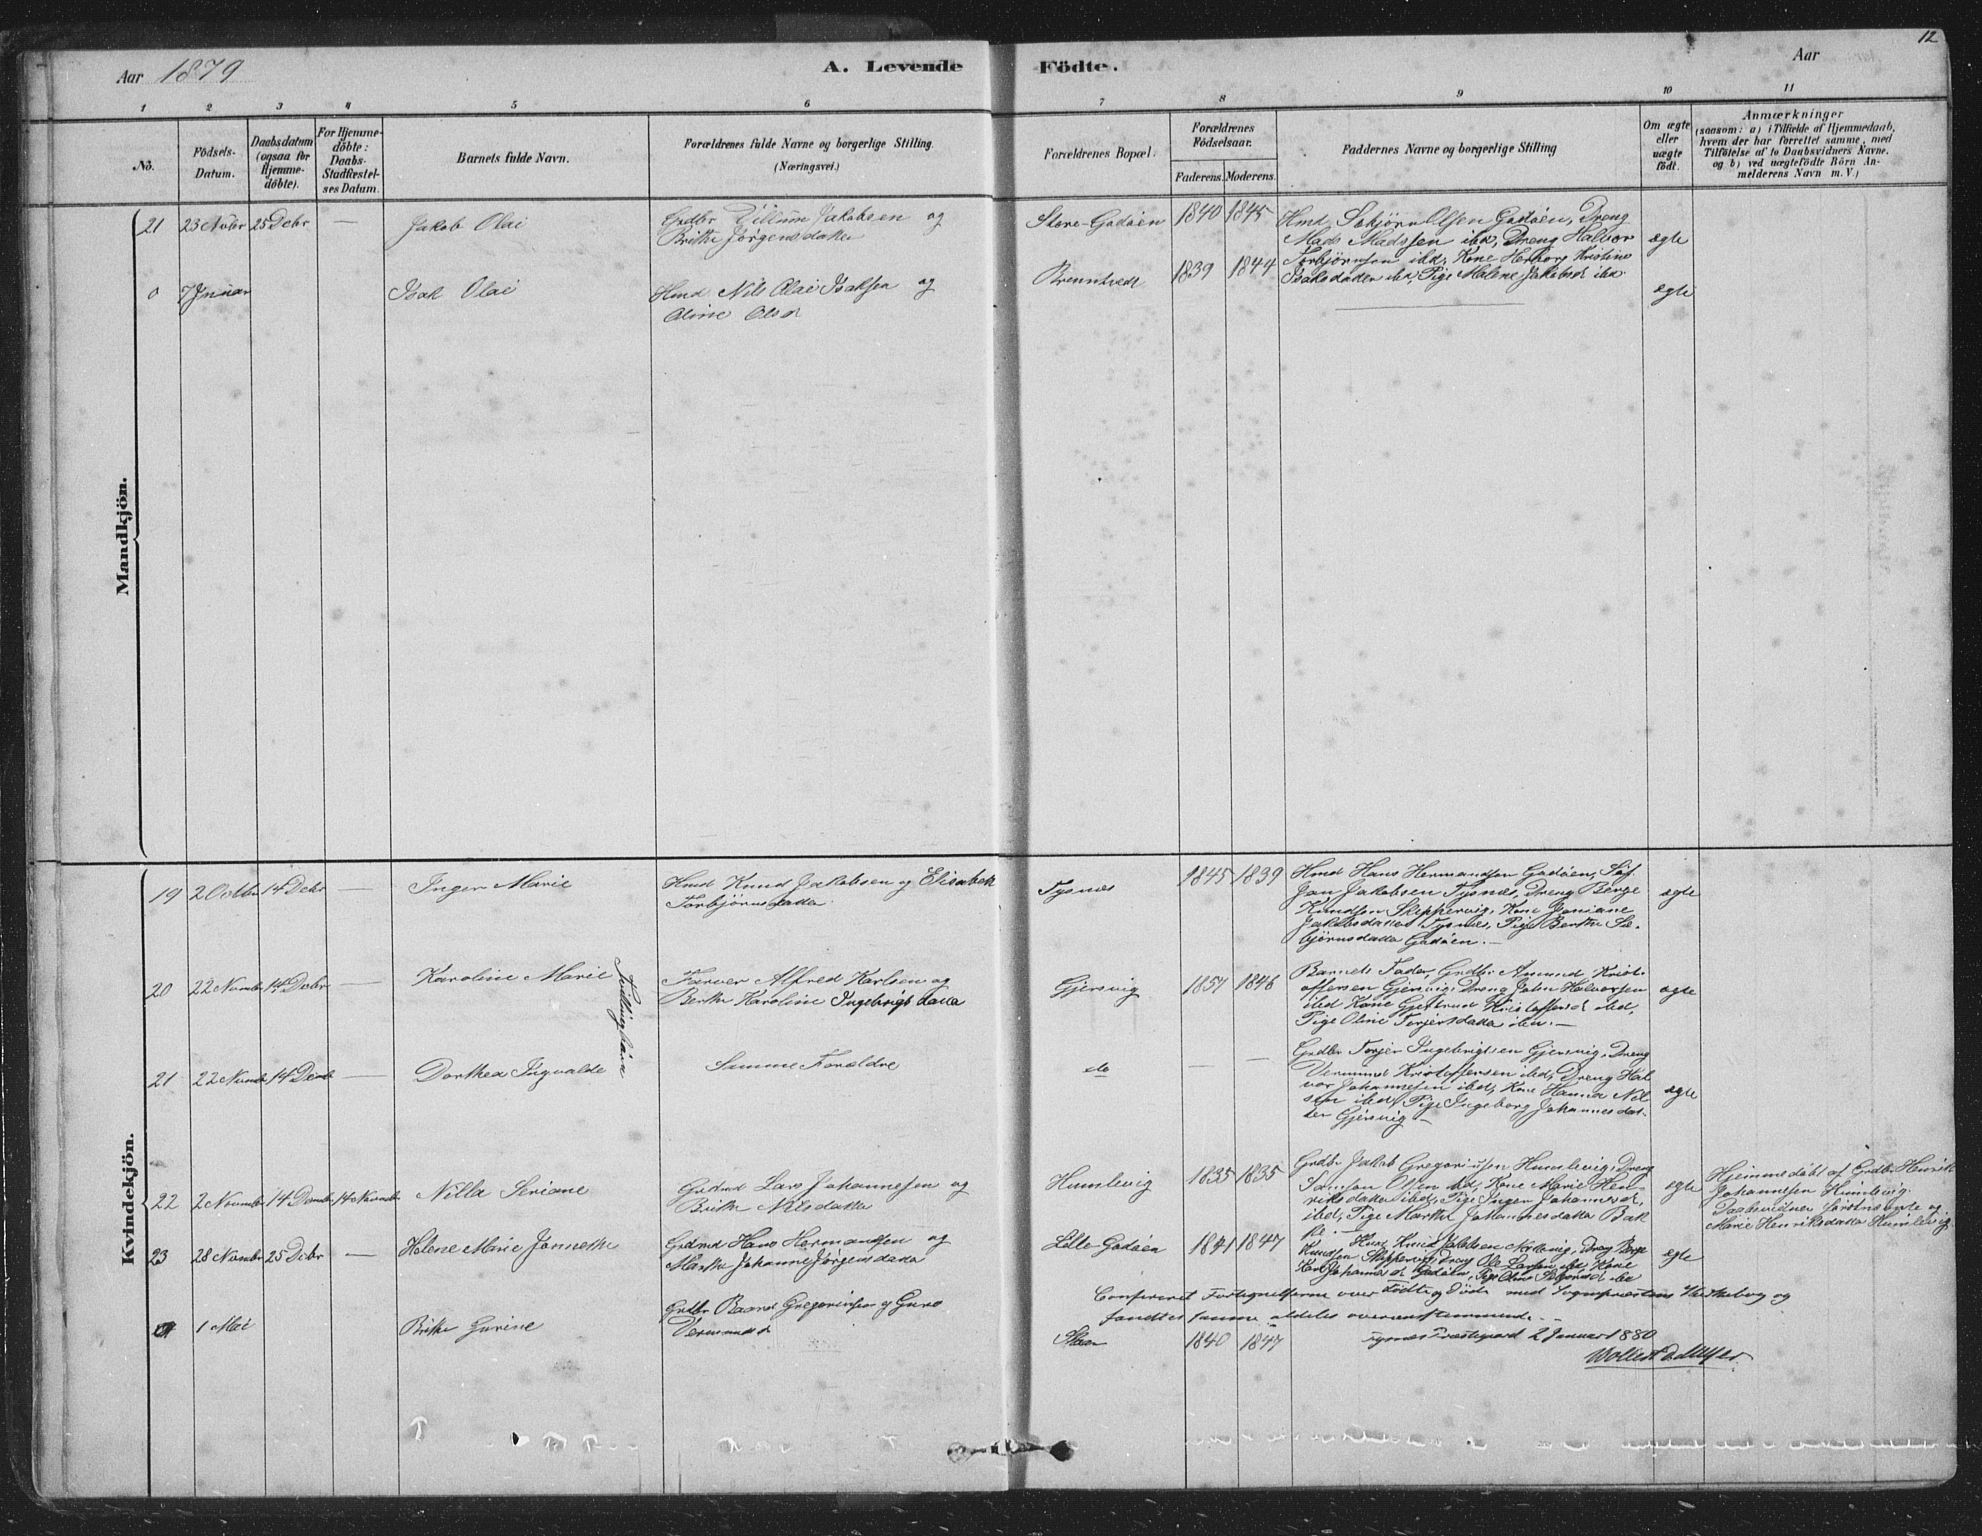 12
Aar 1879
A. Levende
Födte.
Aar
1 2 3 4 5 6 7 8 9 10 11
No.
Födsels-Datum.
Daabsdatum (ogsaa for Hjemme-døbte).
For Hjemme-døbte: Daabs-Stadfæstel-ses Datum.
Barnets fulde Navn.
Forældrenes fulde Navne og borgerlige Stilling.
(Næringsvei.)
Forældrenes Bopæl.
Forældrenes Födselsaar.
Faderens. Moderens.
Faddernes Navne og borgerlige Stilling
Om ægte eller uægte födt.
Anmærkninger
(saasom: a) i Tilfælde af Hjemmedaab,
hvem der har forrettet samme, med
Tilföielse af to Daabsvidners Navne.
og b) ved uægtefödte Börn An-
melderens Navn m. V.)
Mandkjön.
21 23 Novbr 25 Debr — Jakob Olai
Grdbr Jakobsen og
Brithe Jørgensdatter
Store-Godøen 1840 1845
Hmd Olsen Godøen, Dreng
Mads Madssen ibd, Dreng Halvor
Torbjørnsen ibd, Kone Herborg Kristine
Isaksdatter ibd, Pige Malene Jakobsd ibd.
ægte
0 7 Januar Isak Olai
Hmd Nils Olai Isaksen og
Oline Olsd
1839 1844
ægte
Kvindekjön.
19 14 Debr — Inger Marie
Hmd Knud Jakobsen og Elisabek
Torbjørnsdatter
Tysnes 1845 1839
Hmd Hans Hermandsen Godøen,
Jan Jakobsen Tysnes, Dreng Berge
Knudsen Skippervig, Kone
Jakobsdatter Tysnes, Pige Berthe Sæ-
bjørnsdatter Godøen. —
ægte
20 22 Novmbr 14 Debr — Karoline Marie
Tvillingbørn
Farver Alfred Karlsen og
Berthe Karoline Ingebrigtsdatter
Gjersvig 1857 1846
Barnets Fader, Grdbr Amund Krist-
offersen Gjersvig, Dreng John Halvorsen
ibd Kone Gjertrud Kristoffersd ibd,
Pige Oline Torjersdatter ibd. —
ægte
21 22 Novmb 14 Decmb — Dorthea Ingvalde
Samme Forældre
do — —
Grdbr Torjer Ingebrigtsen Gjersvig, Dreng
Vermund Kristoffersen ibd, Dreng Hal-
vor Johannesen ibd, Kone Hanna Nil-
sen ibd, Pige Ingeborg Johannesdat-
ter Gjersvig —
ægte
22 2 Novmbr 14 Decmbr 14 Novmbr Nilla Seriane
Grdmd Lars Johannesen og
Brithe Nilsdatter
Humlevig 1835 1835
Grdbr Jakob Gregoriussen Humlevig, Dreng
Samson Olsen ibd, Kone Marie Hen-
riksdatter ibd, Pige Inger Johannesd,
ibd, Pige Marthe Johannesdatter Bak-
ke. —
ægte
Hjemmedøbt af Grdbr Henrik
Johannesen Humlevig.
Daabsvidner førstnævnte og
Marie Henriksdatter Humlevig
23 28 Novmbr 25 Debr — Helene Marie Jannethe
Grdmd Hans Hermandsen og
Marthe Johanne Jørgensdatter
Lille-Godøen 1841 1847
Hmd Knud Jakobsen, Dreng Berge
Knudsen Skippervig, Dreng Ole Larsen ibd, Kone
Johannesd Godøen, Pige
ægte
Confereret Fortegnelserne over Fødte og Døde med Sognepræstens og
fandtes samme aldeles overensstemmende. —
Tysnes Præstegaard 2 Januar 1880
0 1 Mai Brithe Gurine
Grdbr Baard Gregoriusen og Guro
Vermundsd
1840 1847